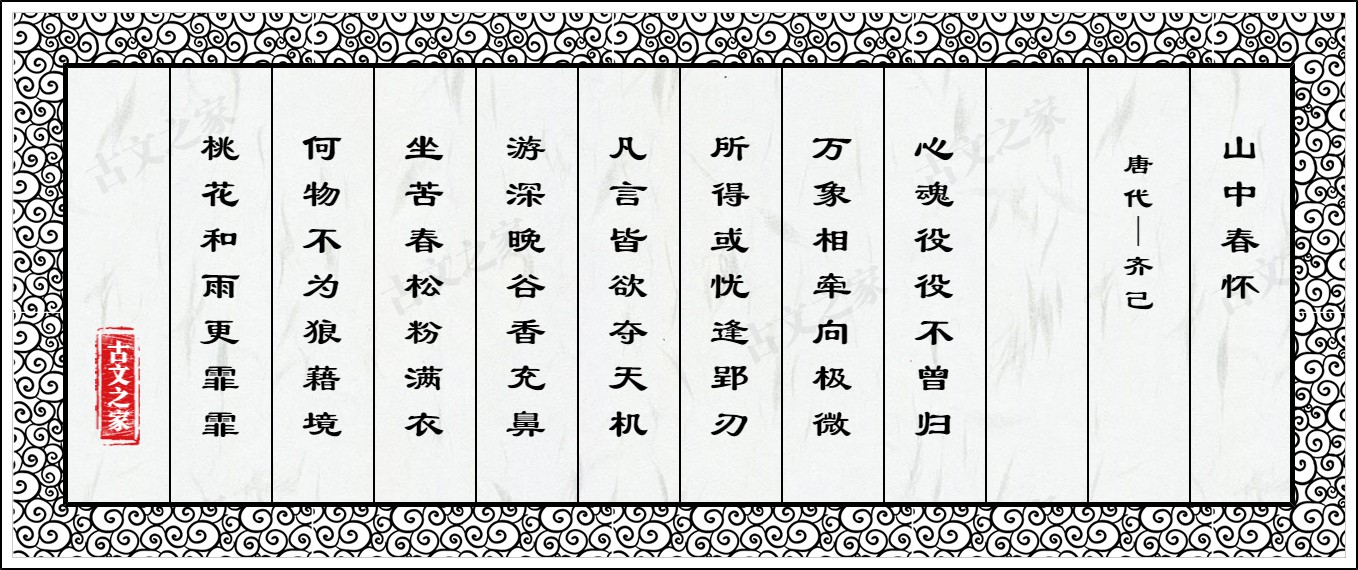 山中春怀
唐代—齐己
心魂役役不曾归
万象相牵向极微
所得或忧逢郢刃
凡言皆欲夺天机
游深晚谷香充鼻
坐苦春松粉满衣
何物不为狼藉境
桃花和雨更霏霏
古文之家
古文之家
古文之家
古文之家
古文之家